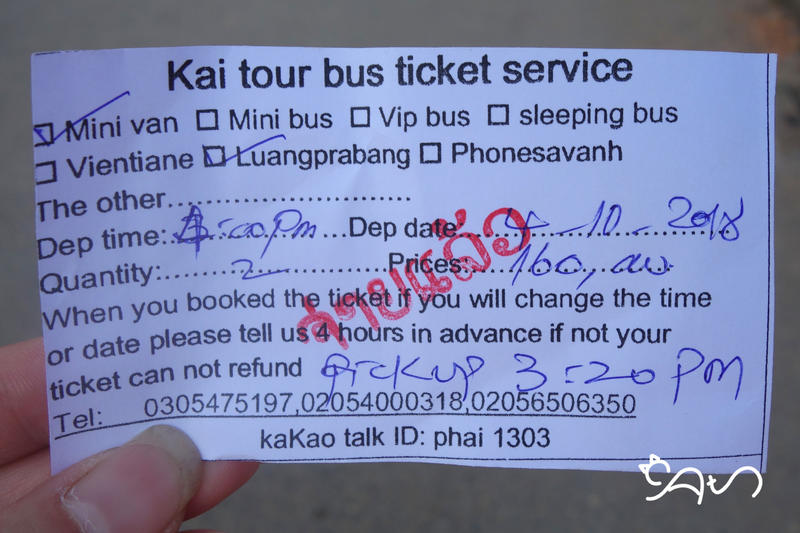 Kai tour bus ticket service
☑ Mini van ☐ Mini bus ☐ Vip bus ☐ sleeping bus
☐ Vientiane ☑ Luangprabang ☐ Phonesavanh
The other...........................
Dep time: 4:00 pm ...Dep date: 4-10-2018
Quantity:......2................Prices: 160,000
ຈ່າຍແລ້ວ
When you booked the ticket if you will change the time
or date please tell us 4 hours in advance if not your
ticket can not refund pickup 3:20 PM
Tel: 0305475197,02054000318,02056506350
kaKao talk ID: phai 1303